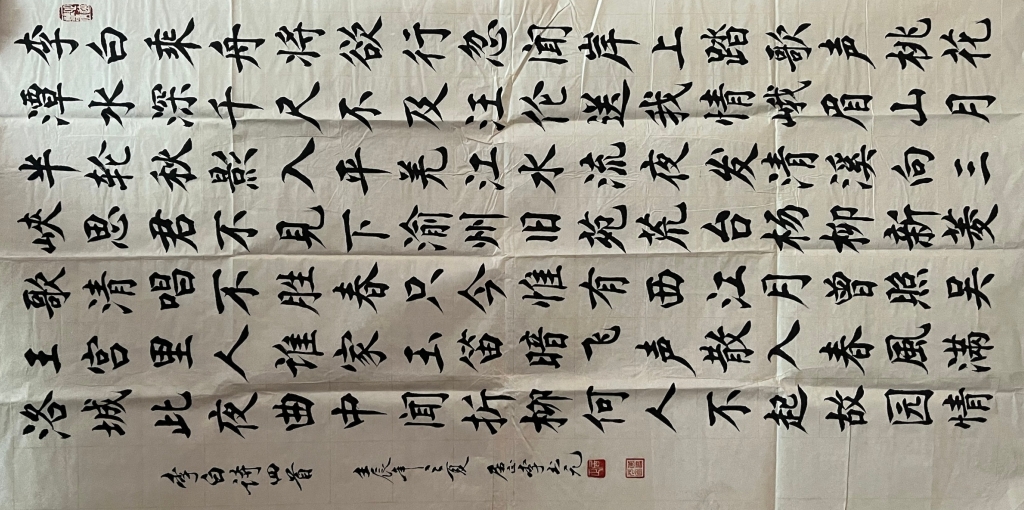 李白乘舟将欲行忽闻岸上踏歌声桃花
潭水深千尺不及汪伦送我情峨眉山月
半轮秋影入平羌江水流夜发清溪向三
峡思君不见下渝州旧苑荒台杨柳新菱
歌清唱不胜春只今惟有西江月曾照吴
王宫里人谁家玉笛暗飞声散入春風满
洛城此夜曲中闻折柳何人不起故园情
李白诗四首 辰年之夏